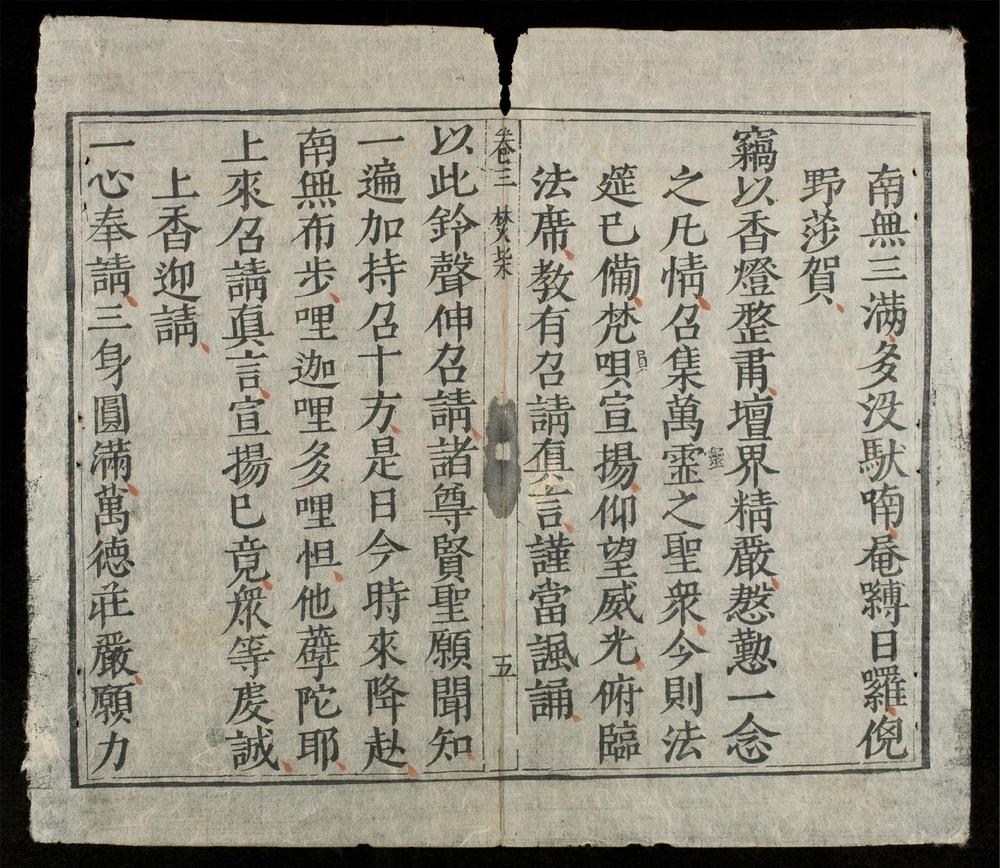 南無三滿多没馱喃唵縛日囉倪
野莎賀
竊以香燈整肅壇界精嚴慇懃一念
之凡情召集萬霊之聖衆今則法
筵已備梵唄宣揚仰望威光俯臨
法席教有召請真言謹當諷誦
卷三
五
以此鈴聲伸召請諸尊賢聖願聞知
一遍加持召十方是日今時來降赴
南無布步哩迦哩多哩怛他蘖陀耶
上來召請真言宣揚已竟衆等虔誠
上香迎請
一心奉請三身圓滿萬德莊嚴願力